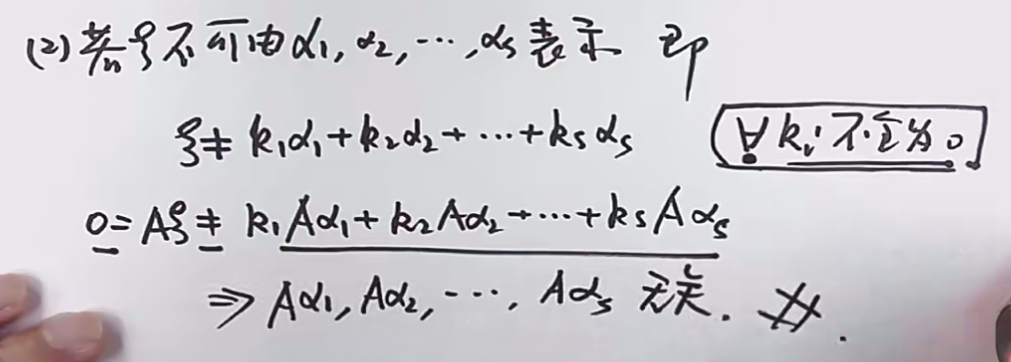 (2) 若ξ不可由α₁, α₂, ⋯, αs表示 即
ξ ≠ k₁α₁ + k₂α₂ + ⋯ + ksαs ∀ kᵢ 不全为0
0 = Aξ ≠ k₁Aα₁ + k₂Aα₂ + ⋯ + ksAαs
⇒ Aα₁, Aα₂, ⋯, Aαs 无关. #.